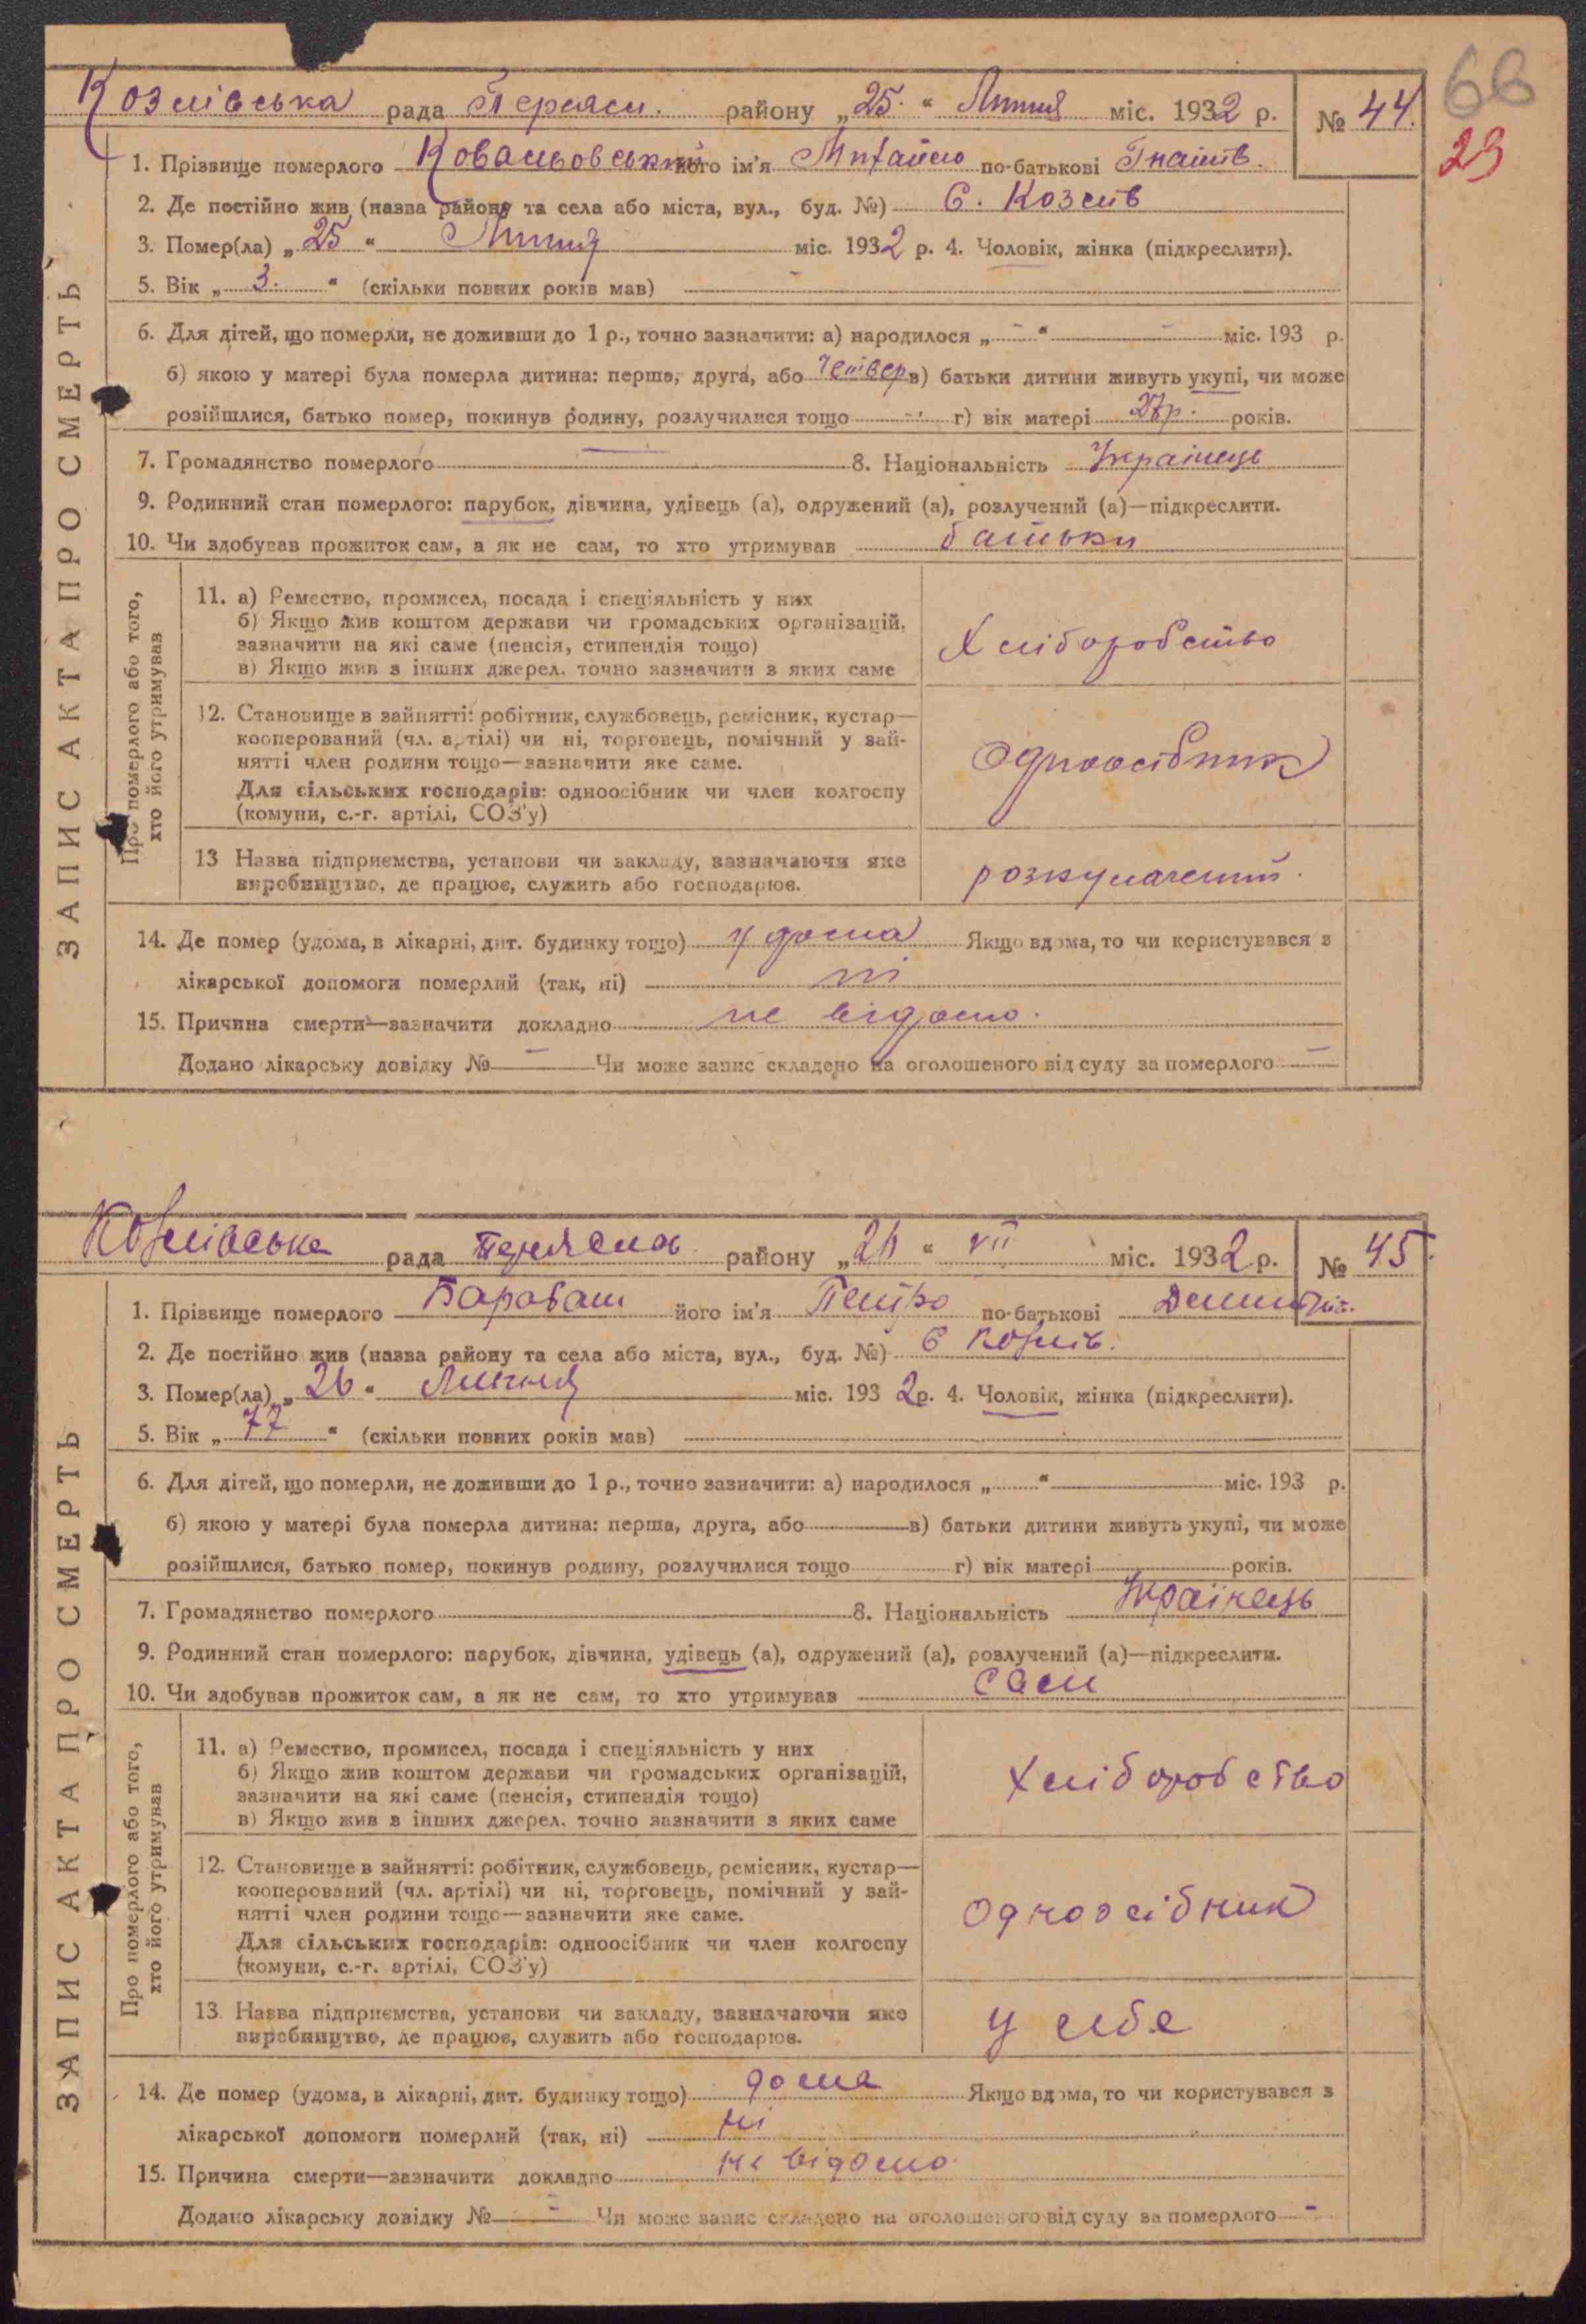 66
29
Козлівська рада Переясл. району „25“ Липня міс. 1932 р. № 44.
ЗАПИС АКТА ПРО СМЕРТЬ
1. Прізвище померлого Ковальовський його ім'я Михайло по-батькові Гнатів.
2. Де постійно жив (назва району та села або міста, вул., буд. №) С. Козлів
3. Помер(ла) „25“ Липня міс. 1932 р. 4. Чоловік, жінка (підкреслити).
5. Вік „3.“ (скільки повних років мав)
6. Для дітей, що померли, не доживши до 1 р., точно зазначити: а) народилося „-“ - міс. 193 р.
б) якою у матері була померла дитина: перша, друга, або четвер в) батьки дитини живуть укупі, чи може
розійшлися, батько помер, покинув родину, розлучилися тощо - г) вік матері р. років.
7. Громадянство померлого — 8. Національність Українець
9. Родинний стан померлого: парубок, дівчина, удівець (а), одружений (а), розлучений (а)—підкреслити.
10. Чи здобував прожиток сам, а як не сам, то хто утримував батьки
Про померлого або того, хто його утримував
11. а) Ремество, промисел, посада і спеціяльність у них
б) Якщо жив коштом держави чи громадських організацій,
зазначити на які саме (пенсія, стипендія тощо)
в) Якщо жив з інших джерел, точно зазначити з яких саме
Хліборобство
12. Становище в зайнятті: робітник, службовець, ремісник, кустар—
кооперований (чл. артілі) чи ні, торговець, помічний у зай-
нятті член родини тощо—зазначити яке саме.
Для сільських господарів: одноосібник чи член колгоспу
(комуни, с.-г. артілі, СОЗ'у)
Одноосібник
13 Назва підприємства, установи чи закладу, зазначаючи яке
виробництво, де працює, служить або господарює.
розкулачений.
14. Де помер (удома, в лікарні, дит. будинку тощо) у дома Якщо вдома, то чи користувався з
лікарської допомоги померлий (так, ні) ні
15. Причина смерти—зазначити докладно не відомо.
Додано лікарську довідку № - Чи може запис складено на оголошеного від суду за померлого -
Козлівська рада Переяслав району „26“ VII міс. 1932 р. № 45.
ЗАПИС АКТА ПРО СМЕРТЬ
1. Прізвище померлого Барабаш його ім'я Петро по-батькові
2. Де постійно жив (назва району та села або міста, вул., буд. №) С Козлів.
3. Помер(ла) „26“ Липня міс. 1932 р. 4. Чоловік, жінка (підкреслити).
5. Вік „77“ (скільки повних років мав)
6. Для дітей, що померли, не доживши до 1 р., точно зазначити: а) народилося „ “ міс. 193 р.
б) якою у матері була померла дитина: перша, друга, або в) батьки дитини живуть укупі, чи може
розійшлися, батько помер, покинув родину, розлучилися тощо г) вік матері років.
7. Громадянство померлого 8. Національність Українець
9. Родинний стан померлого: парубок, дівчина, удівець (а), одружений (а), розлучений (а)—підкреслити.
10. Чи здобував прожиток сам, а як не сам, то хто утримував сам
Про померлого або того, хто його утримував
11. а) Ремество, промисел, посада і спеціяльність у них
б) Якщо жив коштом держави чи громадських організацій,
зазначити на які саме (пенсія, стипендія тощо)
в) Якщо жив з інших джерел, точно зазначити з яких саме
Хліборобство
12. Становище в зайнятті: робітник, службовець, ремісник, кустар—
кооперований (чл. артілі) чи ні, торговець, помічний у зай-
нятті член родини тощо—зазначити яке саме.
Для сільських господарів: одноосібник чи член колгоспу
(комуни, с.-г. артілі, СОЗ'у)
Одноосібник
13. Назва підприємства, установи чи закладу, зазначаючи яке
виробництво, де працює, служить або господарює.
у себе
14. Де помер (удома, в лікарні, дит. будинку тощо) дома Якщо вдома, то чи користувався з
лікарської допомоги померлий (так, ні) ні
15. Причина смерти—зазначити докладно не відомо
Додано лікарську довідку № - Чи може запис складено на оголошеного від суду за померлого -